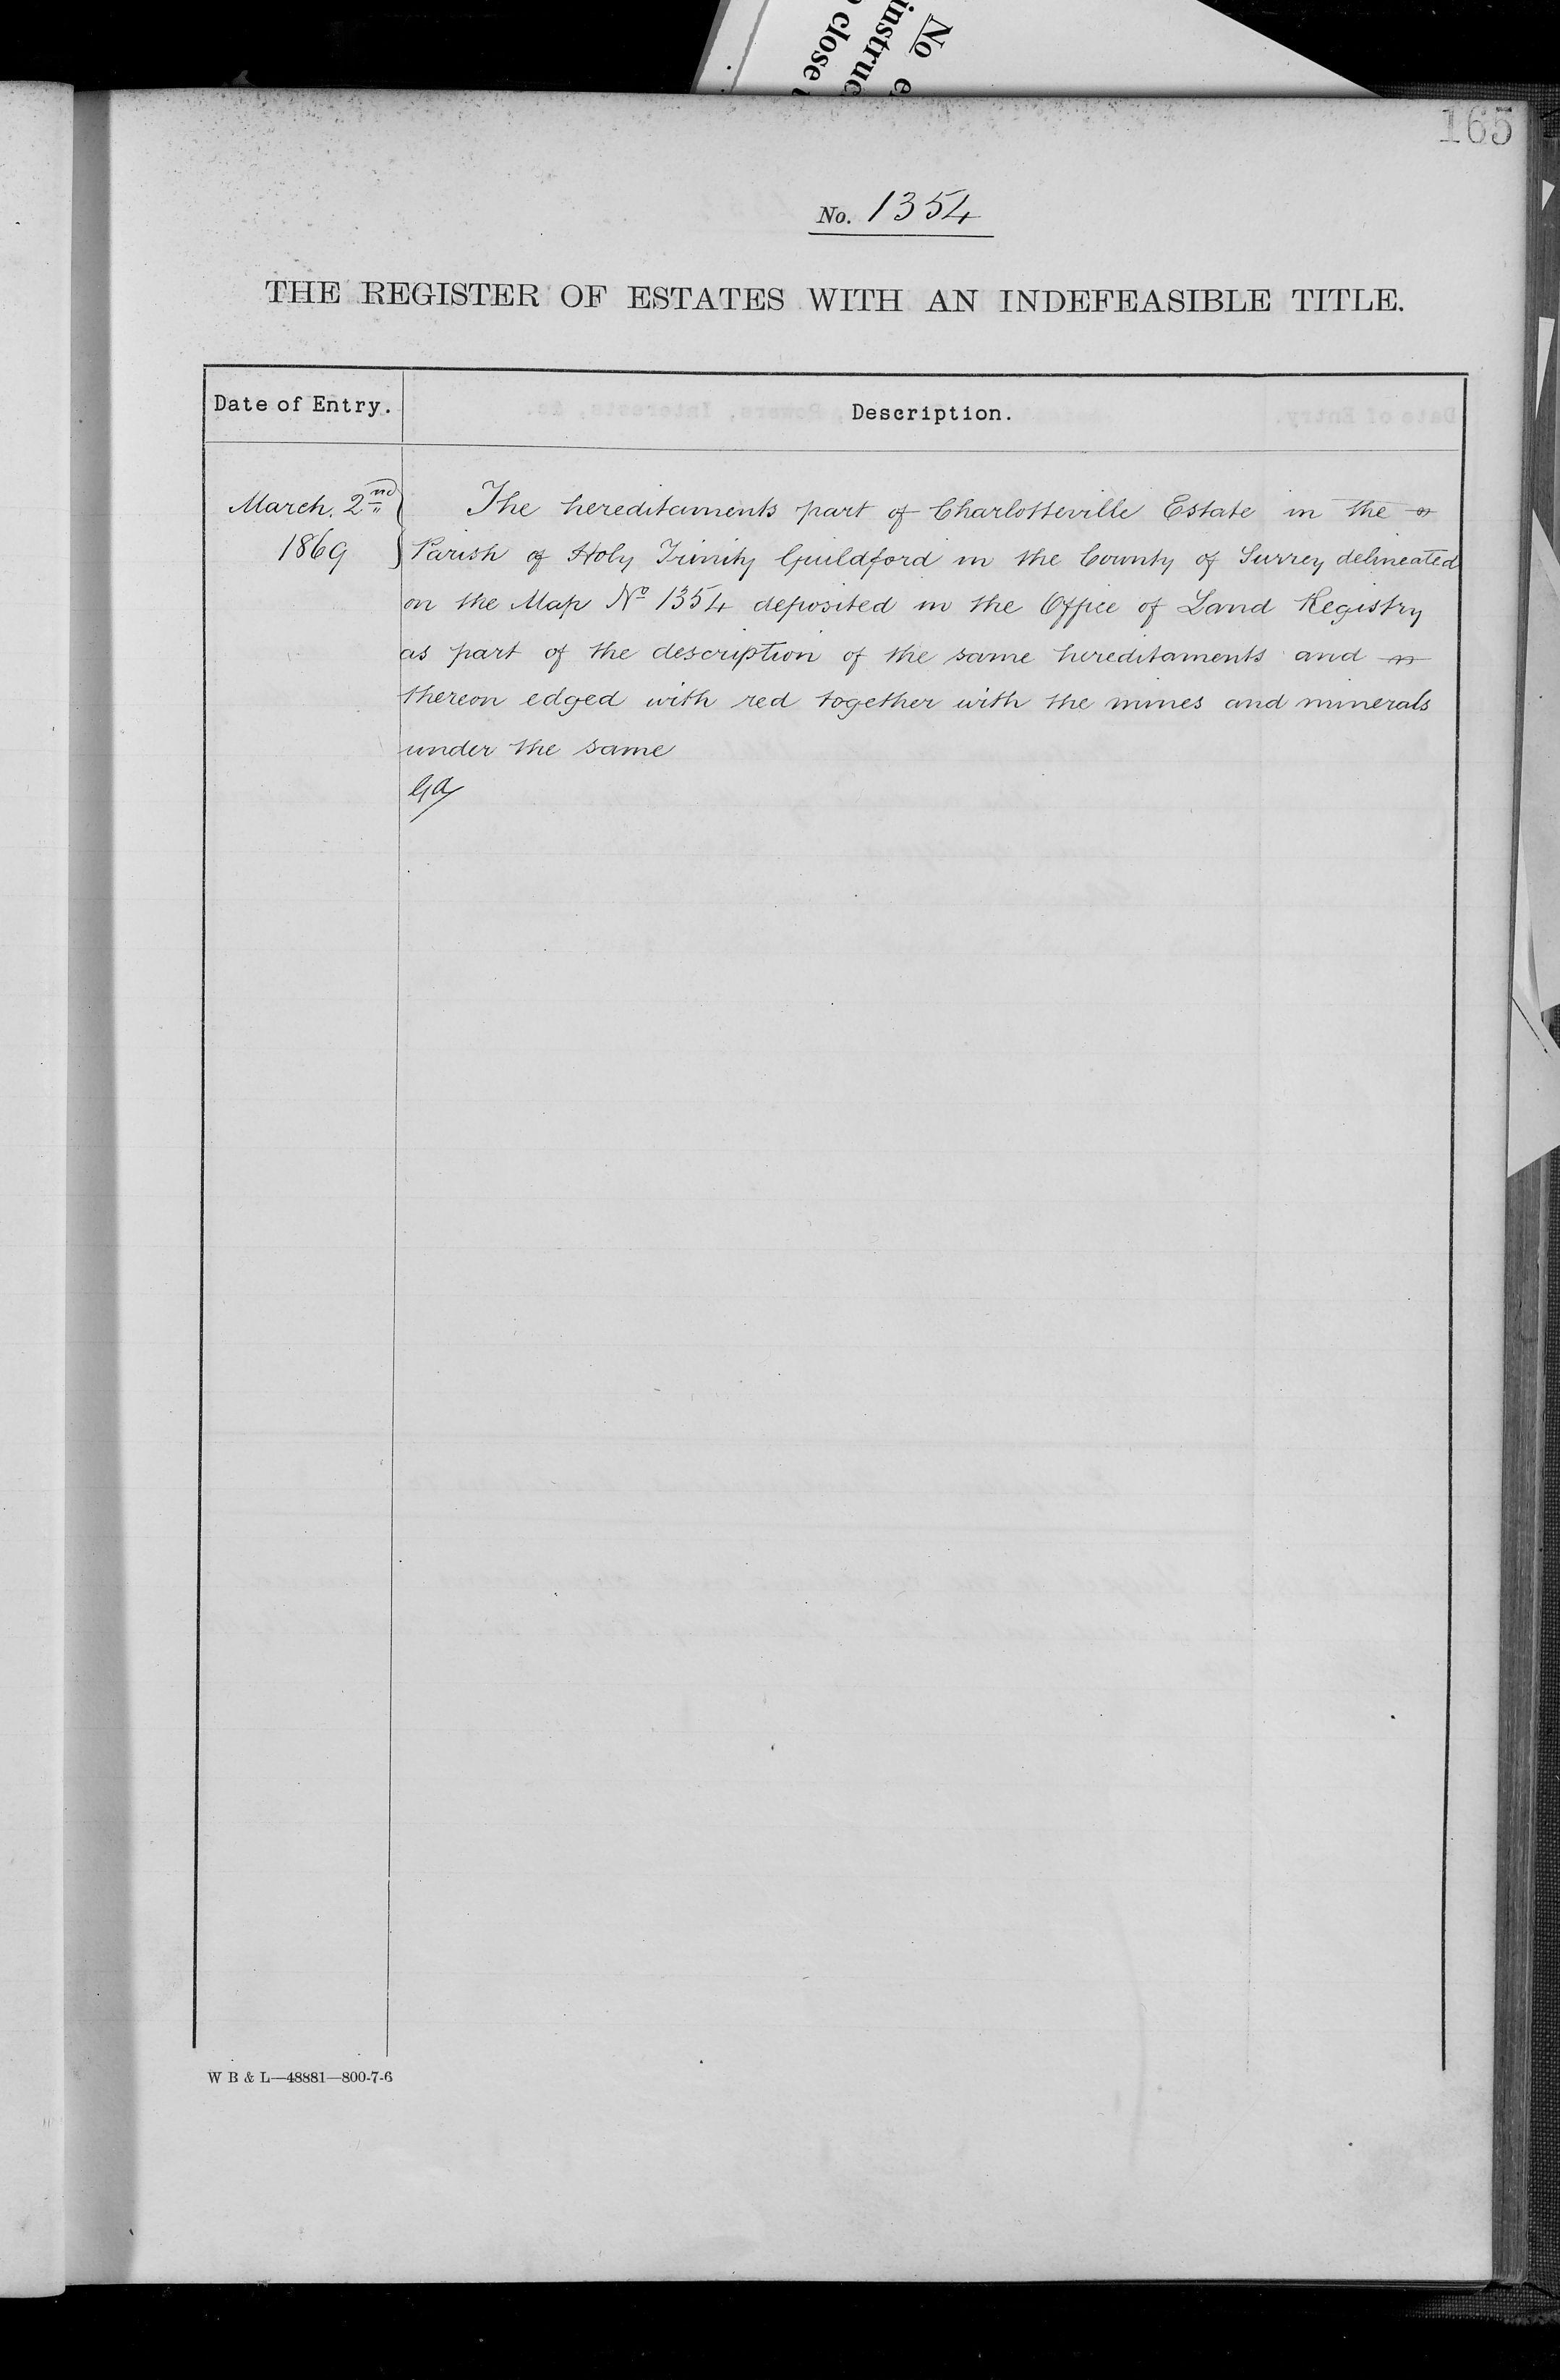 No
instruc
close
165
No. 1354
THE REGISTER OF ESTATES WITH AN INDEFEASIBLE TITLE.
Date of Entry. Description.
March. 2nd The hereditaments part of Charlotteville Estate in the
1869 Parish of Holy Trinity Guildford in the County of Surrey delineated
on the Map No 1354 deposited in the Office of Land Registry
as part of the description of the same hereditaments and
thereon edged with red together with the mines and minerals
under the same
W B & L—48881—800-7-6